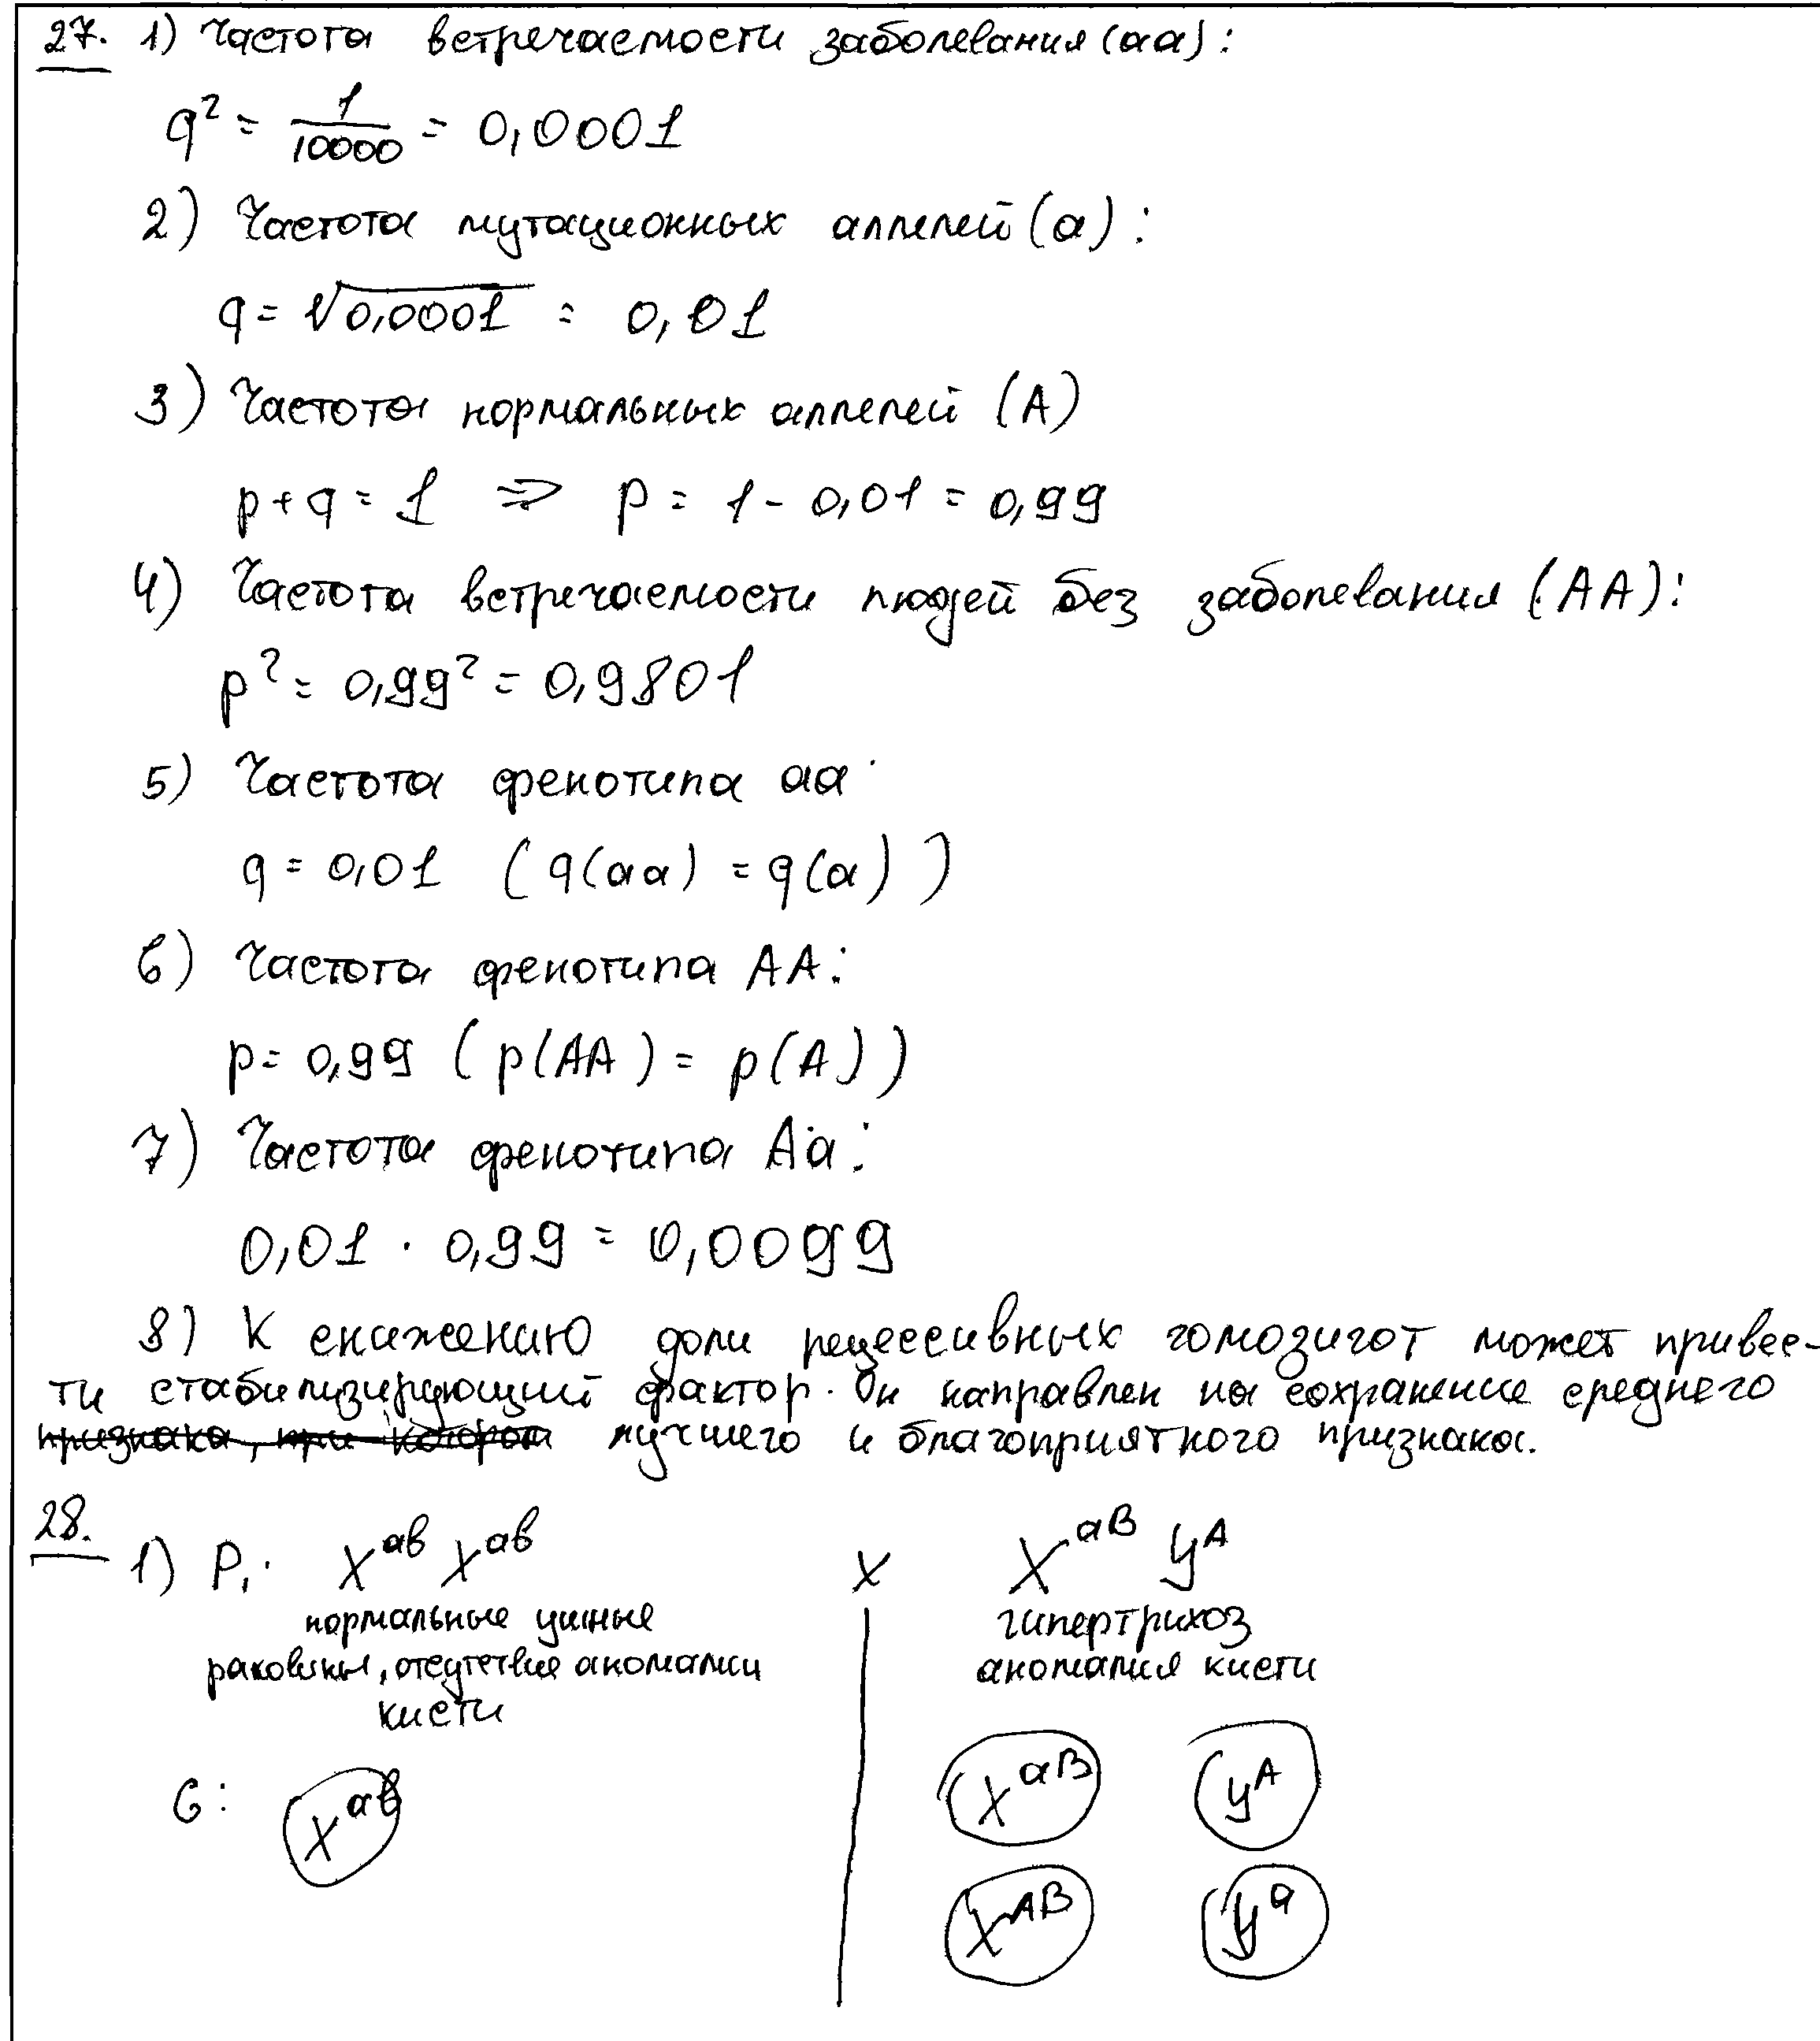 27. 1) Частота встречаемости заболевания (aa):
q² = 1/10000 = 0,0001
2) Частота мутационных аллелей (a):
q = √0,0001 = 0,01
3) Частота нормальных аллелей (A)
p + q = 1 ⇒ p = 1 - 0,01 = 0,99
4) Частота встречаемости людей без заболевания (AA):
p² = 0,99² = 0,9801
5) Частота фенотипа aa
q = 0,01 (q(aa) = q(a))
6) Частота фенотипа AA:
p = 0,99 (p(AA) = p(A))
7) Частота фенотипа Aa:
0,01 · 0,99 = 0,0099
8) К снижению доли рецессивных гомозигот может привес-
ти стабилизирующий фактор. Он направлен на сохранение среднего
признака, при котором лучшего и благоприятного признака.
28. 1) P₁: X^ab X^ab x X^aB Y^A
нормальные ушные гипертрихоз
раковины, отсутствие аномалии аномалия кисти
кисти
G: X^ab X^aB Y^A
X^AB Y^a